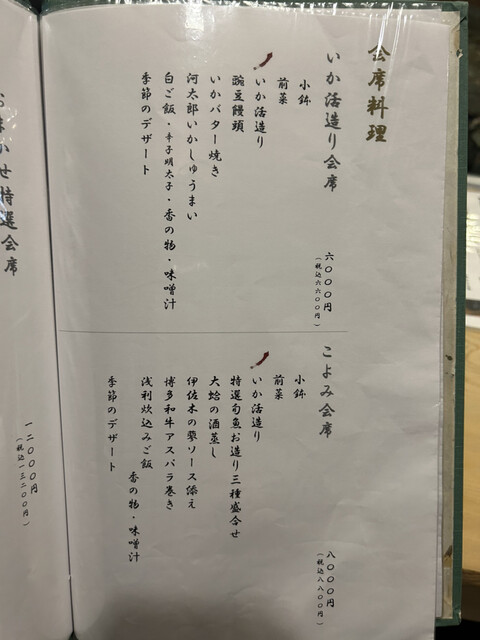 会席料理
いか活造り会席
六〇〇〇円
(税込六六〇〇円)
小鉢
前菜
いか活造り
豌豆饅頭
いかバター焼き
河太郎いかしゅうまい
白ご飯・辛子明太子・香の物・味噌汁
季節のデザート
こよみ会席
八〇〇〇円
(税込八八〇〇円)
小鉢
前菜
いか活造り
特選旬魚お造り三種盛合せ
大蛤の酒蒸し
伊佐木の蓼ソース添え
博多和牛アスパラ巻き
浅利炊込みご飯
香の物・味噌汁
季節のデザート
おまかせ特選会席
一二〇〇〇円
(税込一三二〇〇円)